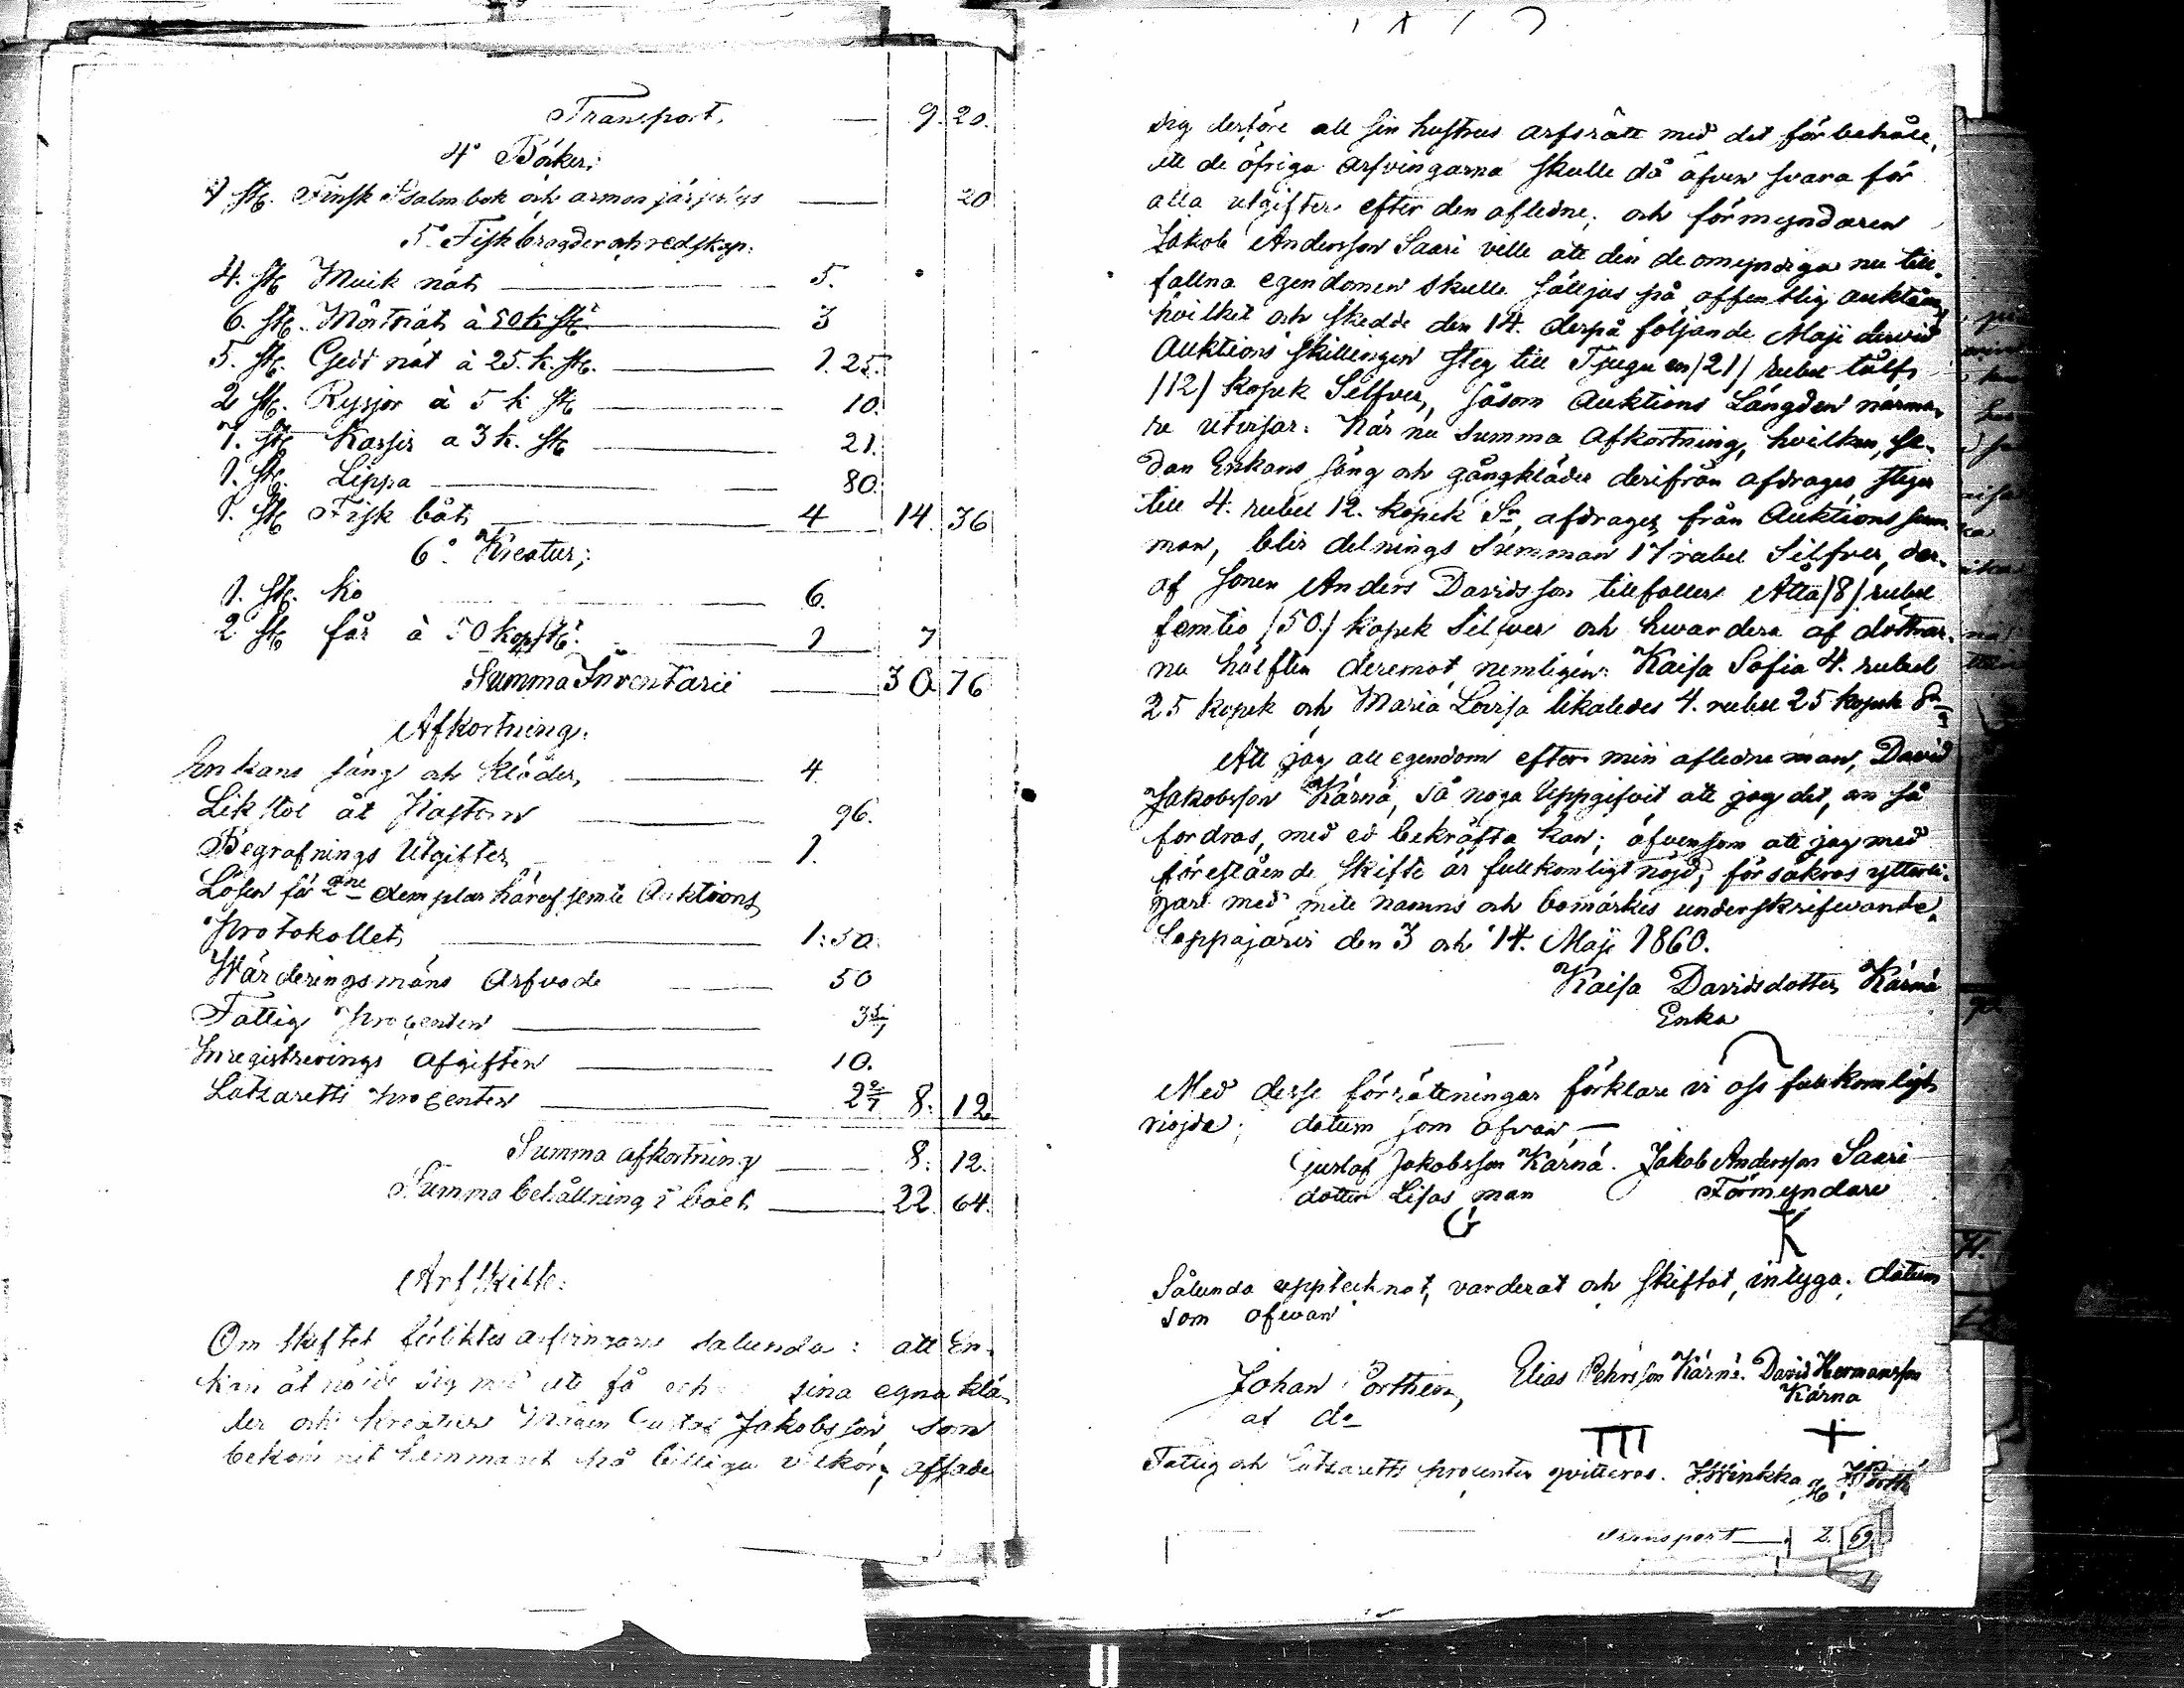 Transport. — 9. 20.
4° Böker:
2 st. Finsk Psalmbok och armon järjestys — 20
5° Fiskbragder och redskap:
4. st Muik nät — 5.
6. st. Mörtnät à 50 k st — 3
5. st. Gedd nät à 25. k. st. — 1. 25.
2 st. Rysjor à 5 k st — 10.
7. st Kassir a 3 k. st — 21.
1. st. Lippa — 80.
1. st Fisk båt — 4 14. 36
6° Kreatur;
1. st. Ko — 6.
2 st får à 50 kop st. — 1 7
Summa Inventarii — 30 76
Afkortning:
Enkans säng och kläder, — 4
Likstol åt Pastorn — 96.
Begrafnings Utgifter — 1.
Lösen för 2ne Exemplar häraf jemte Auktions
Protokollet — 1: 50.
Wärderingsmäns Arfvode — 50
Fattig procenten — 3 5/7
Inregistrerings Afgiften — 10.
Latzaretts procenten — 2 2/7 8. 12
Summa afkortning — 8. 12.
Summa behållning i boet — 22. 64.
Arfskifte:
Om skiftet förliktes arfvingarne sålunda: att En-
kan åtnöjde sig med att få sina egna klä-
der och kreatur Mågen Gustaf Jakobsson, som
bekommit hemmanet på billiga vilkor, afsade
sig derföre all sin hustrus arfsrätt med det förbehåll,
att de öfriga arfvingarna skulle då äfven svara för
alla utgifter efter den aflidne; och förmyndaren
Jakob Andersson Saari ville att den de omyndiga nu till-
fallna egendomen skulle säljas på offentlig auktion,
hvilket och skedde den 14. derpå följande Maji dervid
Auktions skillingen steg till Tjugu en /21/ rubel tolf
/12/ kopek Silfver, såsom Auktions Längden närma-
re utvisar. När nu summa Afkortning, hvilken, se-
dan Enkans säng och gångkläder derifrån afdrages, stiger
till 4. rubel 12. kopek Sr, afdrages från Auktions sum-
man, blir delnings Summan 17 rubel Silfver, der-
af sonen Anders Davidsson tillfaller Åtta /8/ rubel
femtio /50/ kopek Silfver och hvardera af döttrar-
na hälften deremot, nemligen: Kaisa Sofia 4. rubel
25 kopek och Maria Lovisa likaledes 4. rubel 25 kopek Sr
Att jag all egendom efter min aflidne man, David
Jakobsson Kärnä, så noga uppgifvit att jag det, om så
fordras, med ed bekräfta kan; äfvensom att jag med
förestående skifte är fullkomligt nöjd, försäkras ytterli-
gare med mitt namns och bomärkes underskrifvande.
Lappajärvi den 3 och 14. Maji 1860.
Kaisa Davidsdotter Kärnä
Enka
Med desse förrättningar förklare vi oss fullkomligt
nöjde; datum som ofvan —
Gustaf Jakobsson Kärnä. Jakob Andersson Saari
dotter Lisas man Förmyndare
G K
Sålunda upptecknat, värderat och skiftat, intyga. datum
som ofvan
Johan Porthen, Elias Pehrsson Kärnä. David Hermansson
Kärnä
af do
III +
Fattig och Latzaretts procenten qvitteras.
Transport — 2. 69